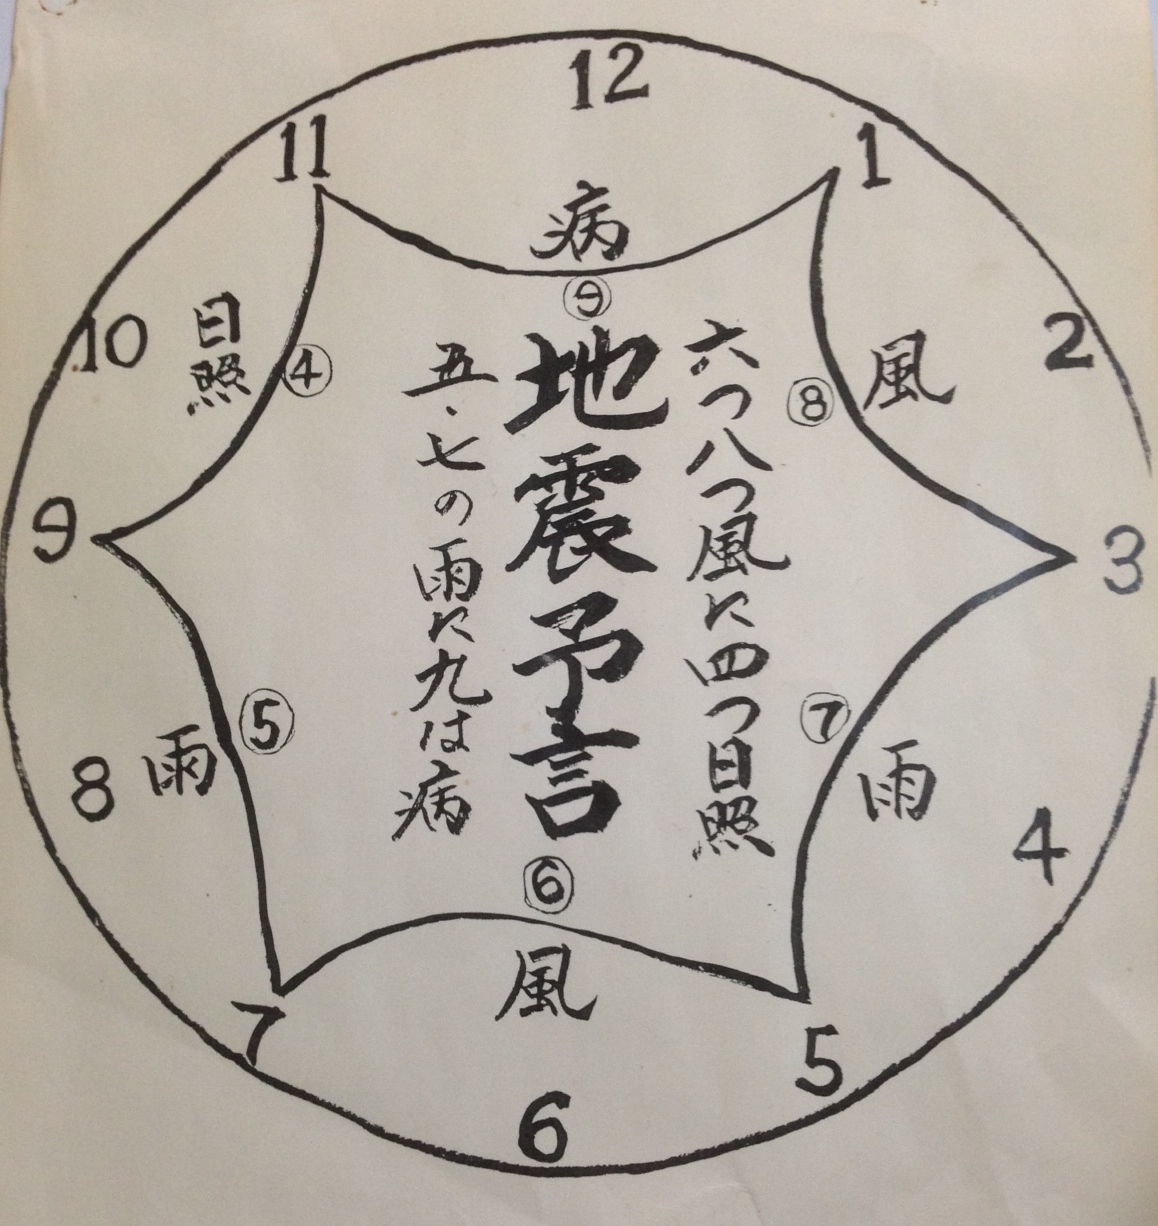 12
11
1
病
⑨
10
日照
④
⑧
風
2
六つ八つ風に四つ日照
地震予言
五、七の雨に九は病
9
3
8
雨
⑤
⑦
雨
4
⑥
風
7
5
6